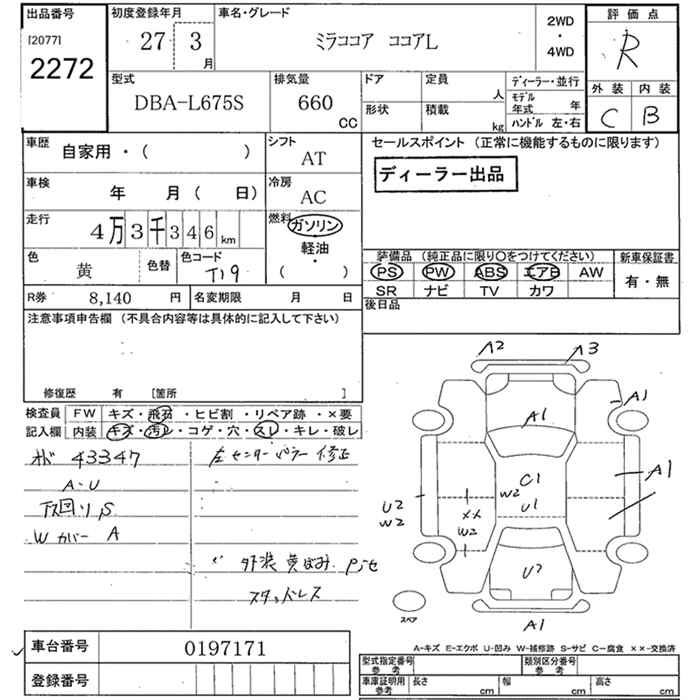 出品番号
[2077]
2272
初度登録年月
27 3
月
車名・グレード
ミラココア ココアL
2WD
・
4WD
評価点
R
外装 内装
C B
型式
DBA-L675S
排気量
660
CC
ドア
形状
定員
人
積載
kg
ディーラー・並行
モデル年式 年
ハンドル 左・右
車歴
自家用・( )
シフト
AT
車検
年 月( 日)
冷房
AC
走行
4万3千346km
燃料
ガソリン
軽油・
( )
色
黄
色替
色コード
T19
R券 8,140 円
名変期限 月 日
セールスポイント (正常に機能するものに限ります)
ディーラー出品
装備品 (純正品に限り○をつけてください)
PS PW ABS エアB AW
SR ナビ TV カワ
新車保証書
有・無
後日品
注意事項申告欄 (不具合内容等は具体的に記入して下さい)
修復歴 有 [箇所 ]
検査員
記入欄
FW キズ・飛石・ヒビ割・リペア跡・×要
内装 キズ・汚レ・コゲ・穴・スレ・キレ・破レ
43347
A-U
下回り S
Wカバー A
左センターピラー修正
外装黄ばみ
スタッドレス
A2 A3
A1
A1
A1
C1
W2
U1
U2
W2
××
W2
U2
スペア
A1
A-キズ E-エクボ U-凹み W-補修跡 S-サビ C-腐食 ××-交換済
車台番号 0197171
登録番号
型式指定番号
参考
類別区分番号
参考
車庫証明用
参考
長さ cm 幅 cm 高さ cm